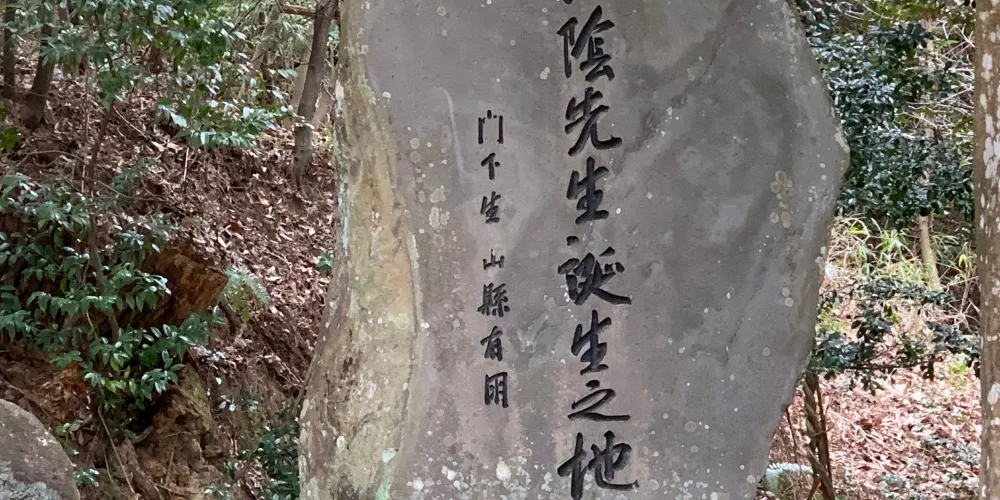 陰先生誕生之地
門下生 山縣有朋